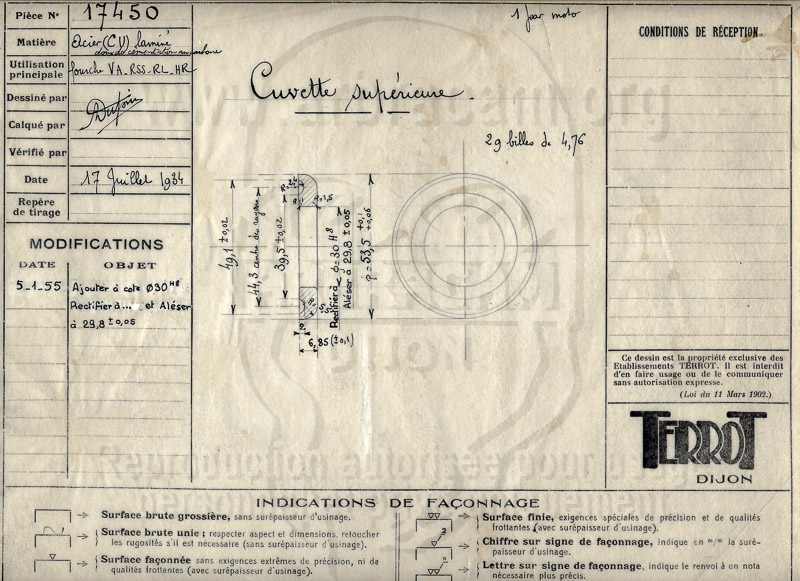 Pièce Nº 17450
1 par moto
Matière Acier (CV) laminé
doux de cémentation au carbone
Utilisation principale fourche VA_RSS_RL_HR
Dessiné par
Calqué par
Vérifié par
Date 17 Juillet 1934
Repère de tirage
Cuvette supérieure
29 billes de 4,76
CONDITIONS DE RÉCEPTION
MODIFICATIONS
DATE OBJET
5_1_55 Ajouter à cote Ø30 H8
Rectifier à... et Aléser
à 29,8 ± 0,05
49,1 ± 0,02
44,3 centre des rayons
39,5 ± 0,02
Rectifié à Ø=30 H8
Aléser à 29,8 ± 0,05
53,5 +0,1 +0,06
6,85 (±0,1)
Ce dessin est la propriété exclusive des
Etablissements TERROT. Il est interdit
d'en faire usage ou de le communiquer
sans autorisation expresse.
(Loi du 11 Mars 1902.)
TERROT
DIJON
INDICATIONS DE FAÇONNAGE
Surface brute grossière, sans surépaisseur d'usinage.
Surface brute unie ; respecter aspect et dimensions, retoucher
les rugosités s'il est nécessaire (sans surépaisseur d'usinage).
Surface façonnée sans exigences extrêmes de précision, ni de
qualités frottantes (avec surépaisseur d'usinage).
Surface finie, exigences spéciales de précision et de qualités
frottantes (avec surépaisseur d'usinage).
Chiffre sur signe de façonnage, indique en m/m la suré-
paisseur d'usinage.
Lettre sur signe de façonnage, indique le renvoi à un nota
nécessaire plus précis.
Reproduction autorisée pour usage